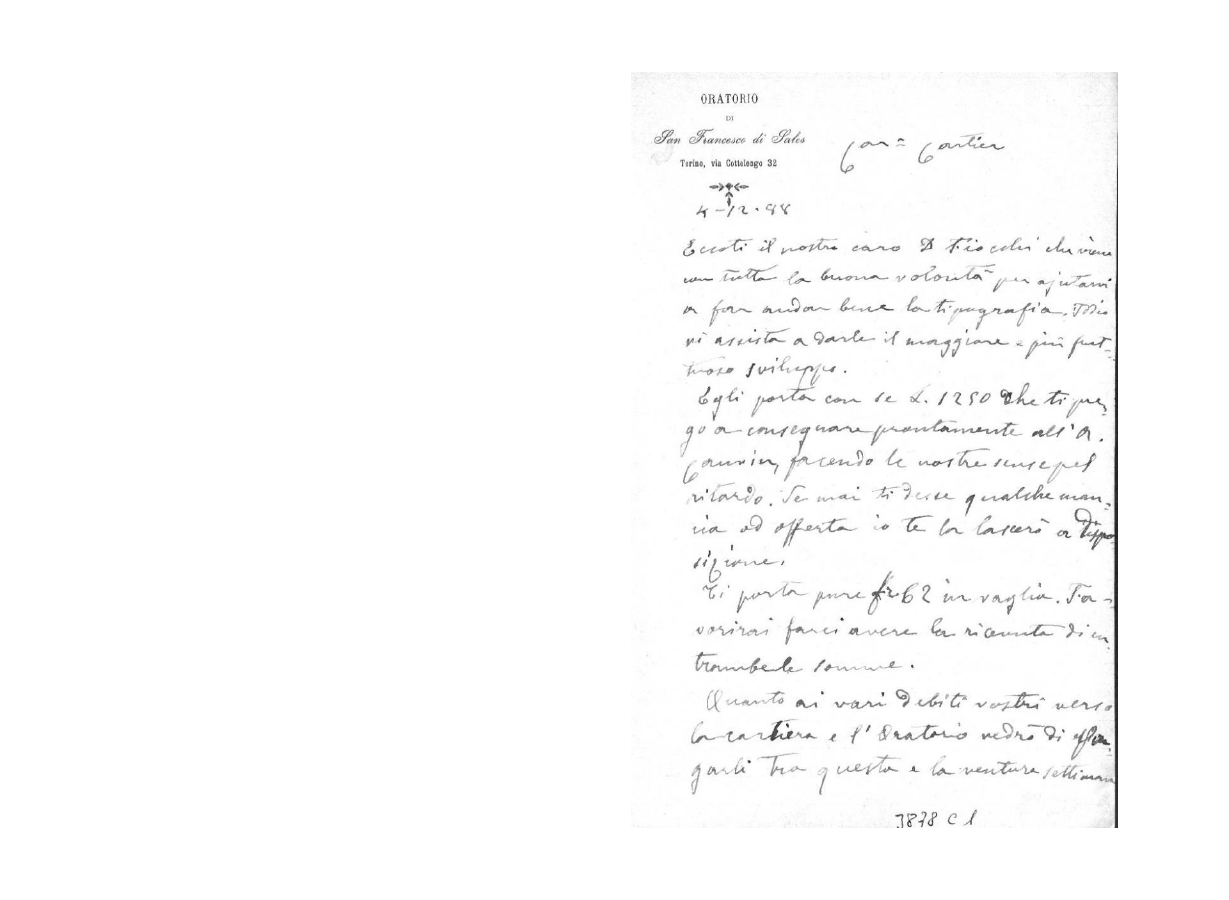 ORATORIO
DI
San Francesco di Sales
Torino, via Cottolengo 32
Car.º Cartier
4-12-88
Eccoti il nostro caro D Fiocchi che viene
con tutta la buona volontà per ajutarvi
a far andar bene la tipografia. Iddio
vi assista a darle il maggiore e più frut-
tuoso sviluppo.
Egli porta con se L. 1250 che ti pre-
go a consegnare prontamente all' A.
Cauvin, facendo le nostre scuse pel
ritardo. Se mai ti desse qualche man-
cia od offerta io te la lascerò a dispo-
sizione.
Ti porta pure fr 62 in vaglia. Fa-
vorirai farci avere la ricevuta di en-
trambe le somme.
Quanto ai vari debiti vostri verso
la cartiera e l' Oratorio vedrò di
garli tra questa e la ventura settimana
3878 C 1